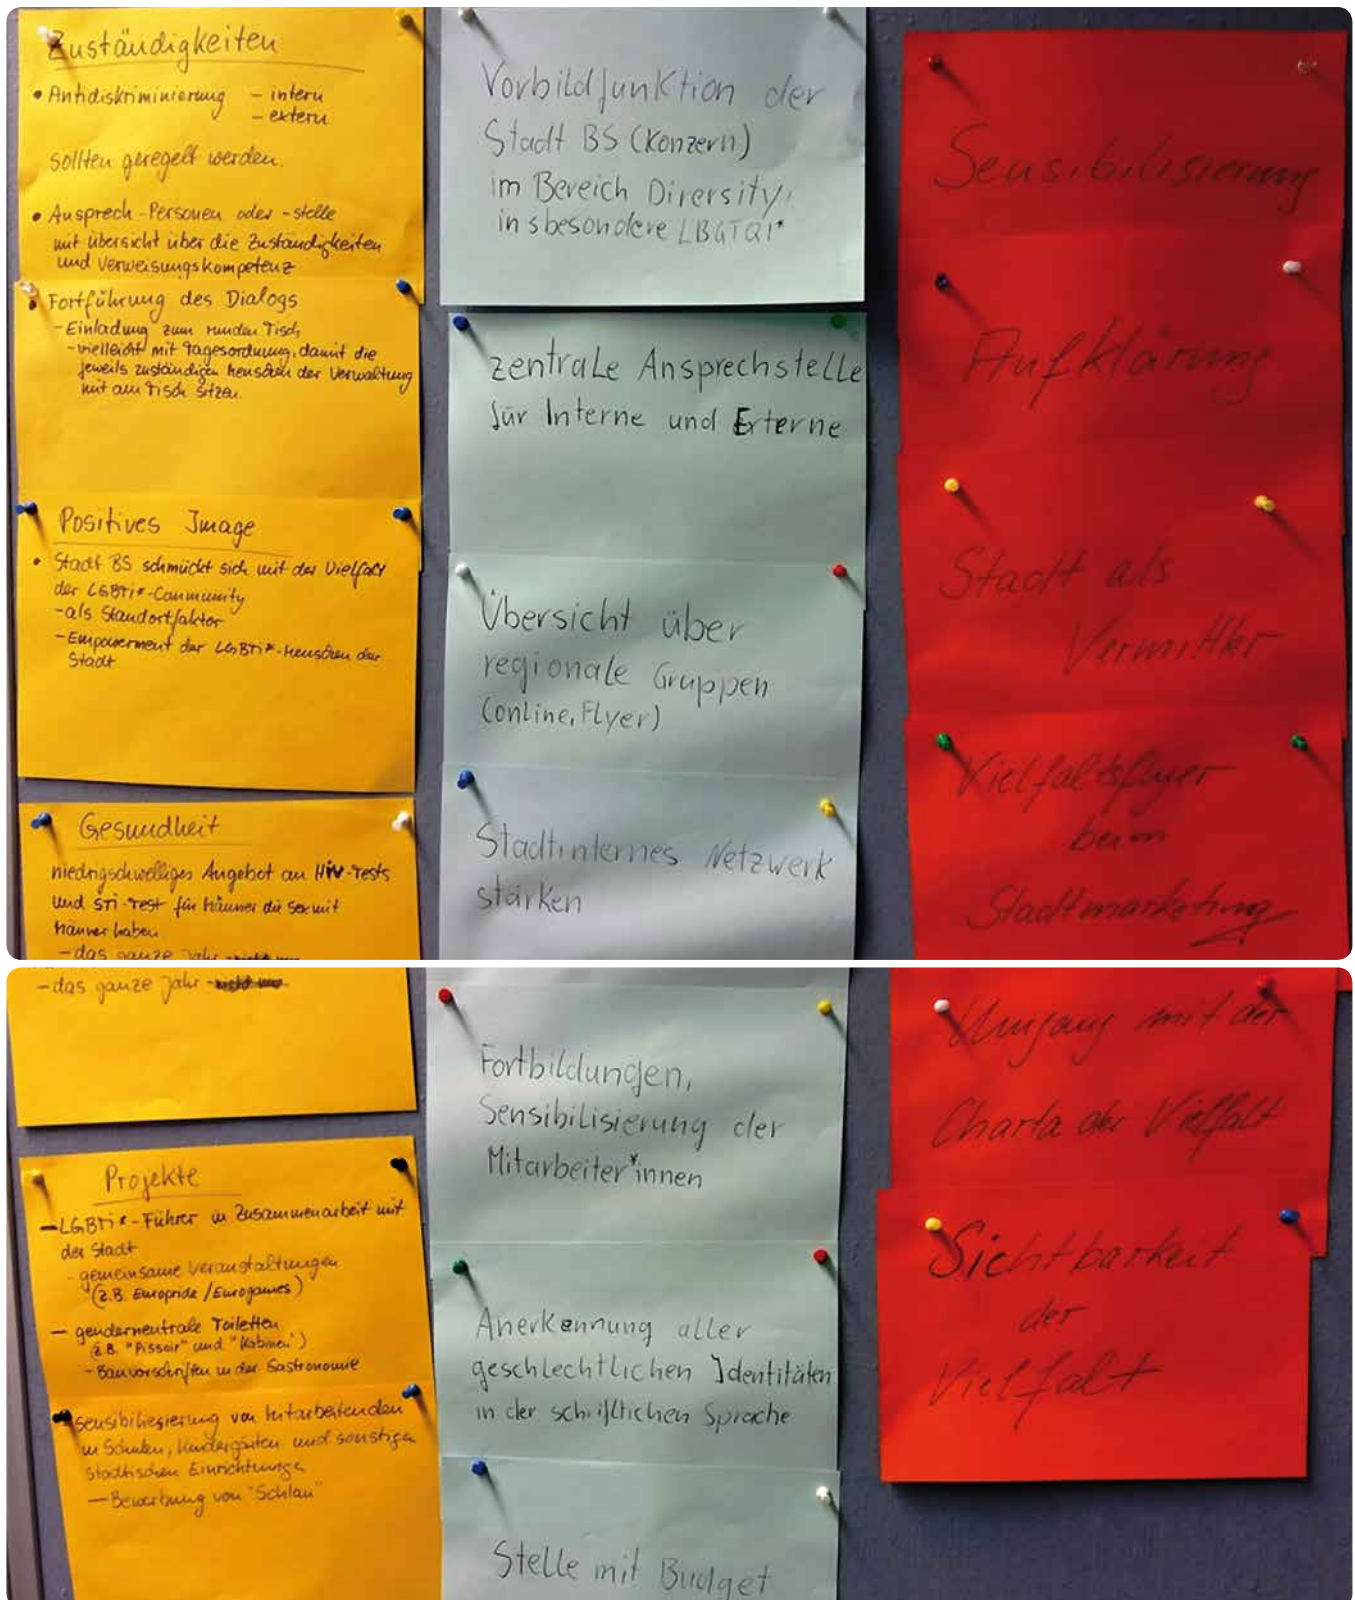 Zuständigkeiten
• Antidiskriminierung - intern
- extern
sollten geregelt werden.
• Ansprech-Personen oder -stelle
mit Übersicht über die Zuständigkeiten
und Verweisungskompetenz
• Fortführung des Dialogs
- Einladung zum runden Tisch
- vielleicht mit Tagesordnung, damit die
jeweils zuständigen Menschen der Verwaltung
mit am Tisch sitzen.
Positives Image
• Stadt BS schmückt sich mit der Vielfalt
der LGBTi*-Community
- als Standortfaktor
- Empowerment der LGBTi*-Menschen der
Stadt
Gesundheit
niedrigschwelliges Angebot an HiV-Tests
und STi-Test für Männer die Sex mit
Männer haben.
- das ganze Jahr
- das ganze Jahr
Projekte
- LGBTi*-Führer in Zusammenarbeit mit
der Stadt
- gemeinsame Veranstaltungen
(z.B. Europride / Eurogames)
- genderneutrale Toiletten
(z.B. "Pissoir" und "Kabinen")
- Bauvorschriften in der Gastronomie
sensibiliesierung von Mitarbeitenden
in Schulen, Kindergärten und sonstigen
städtischen Einrichtungen
- Bewerbung von "Schlau"
Vorbildfunktion der
Stadt BS (Konzern)
im Bereich Diversity,
insbesondere LBGTQI*
zentrale Ansprechstelle
für Interne und Externe
Übersicht über
regionale Gruppen
(online, Flyer)
Stadtinternes Netzwerk
stärken
Fortbildungen,
Sensibilisierung der
Mitarbeiter*innen
Anerkennung aller
geschlechtlichen Identitäten
in der schriftlichen Sprache
Stelle mit Budget
Sensibilisierung
Aufklärung
Stadt als
Vermittler
Vielfaltsflyer
beim
Stadtmarketing
Umgang mit der
Charta der Vielfalt
Sichtbarkeit
der
Vielfalt